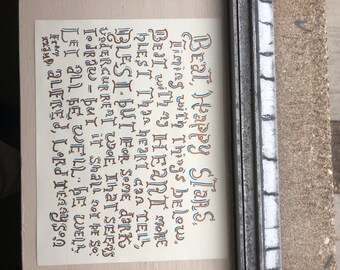 Beat, Happy Stars,
Timing with Things below,
Beat with my HEART more
blest than heart can tell,
BLEST, but for some dark
undercurrent woe that seems
To draw – but it shall not be so:
Let all be well, be well.
from
Maud Alfred, Lord Tennyson